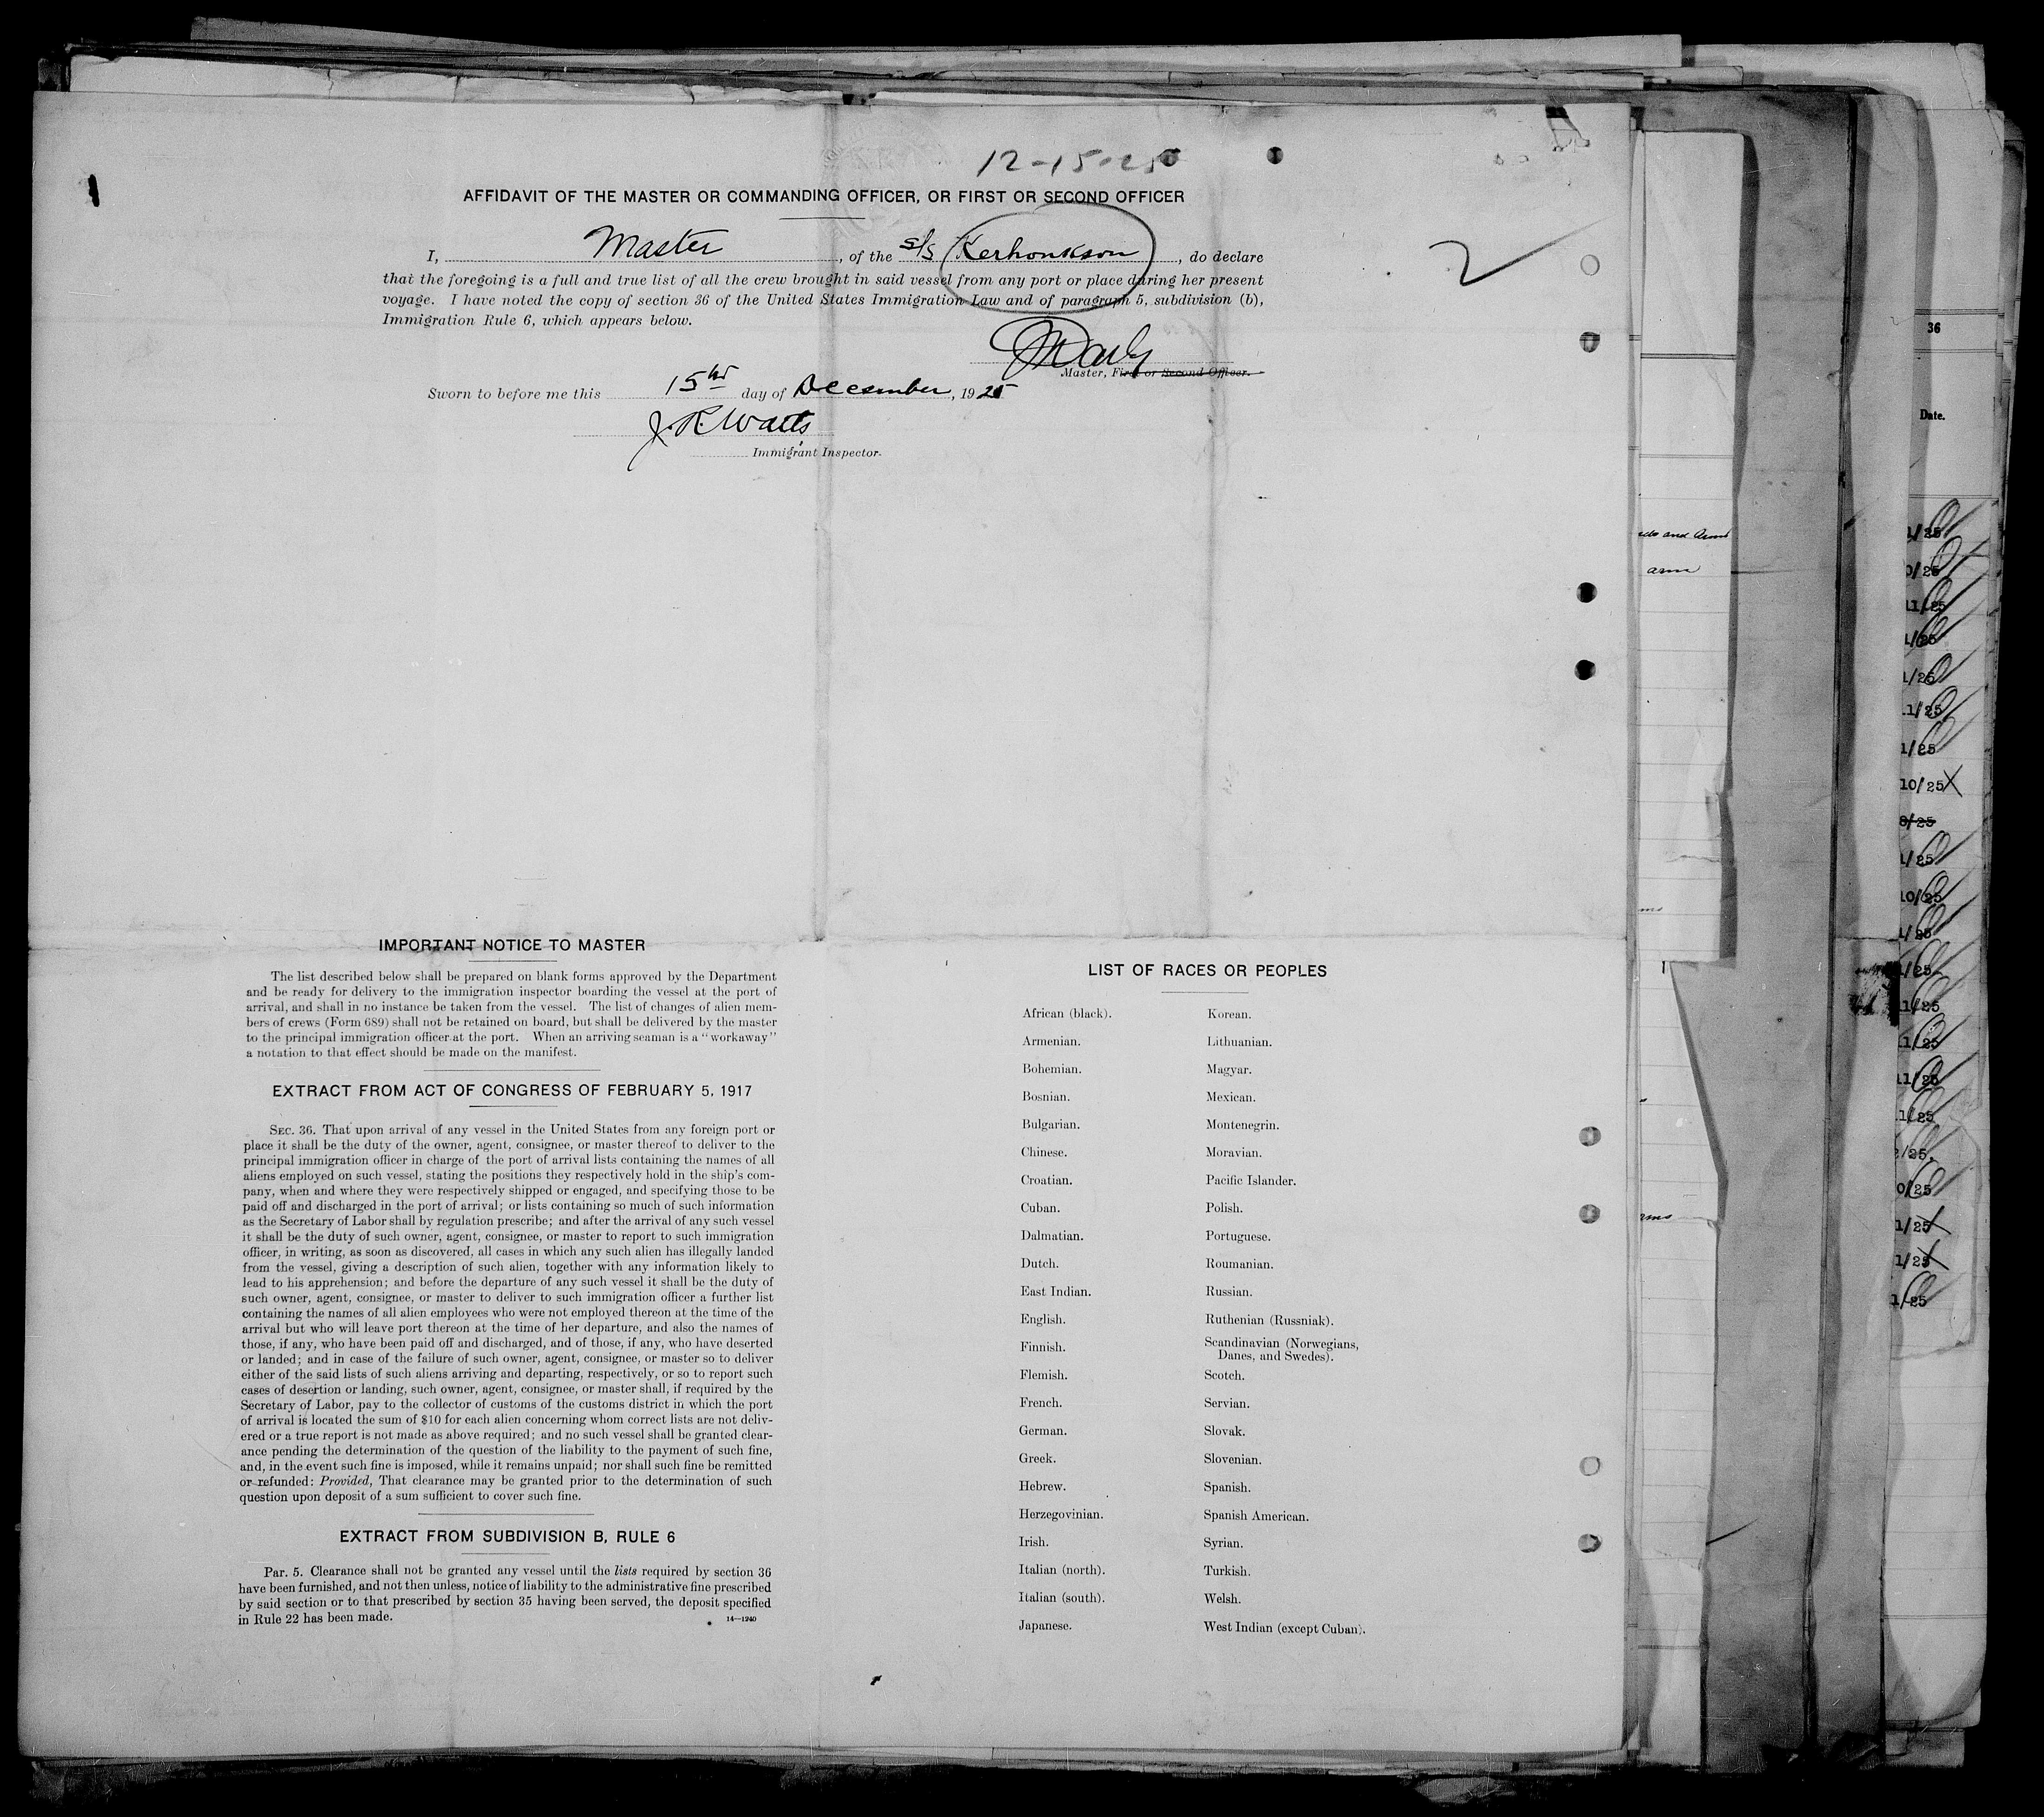 12-15-25
AFFIDAVIT OF THE MASTER OR COMMANDING OFFICER, OR FIRST OR SECOND OFFICER
I, Master, of the S/S Kerhonkson, do declare
that the foregoing is a full and true list of all the crew brought in said vessel from any port or place during her present
voyage. I have noted the copy of section 36 of the United States Immigration Law and of paragraph 5, subdivision (b),
Immigration Rule 6, which appears below.
2
Master, First or Second Officer.
Sworn to before me this 15th day of December, 1925
J. R. Watts
Immigrant Inspector.
IMPORTANT NOTICE TO MASTER
The list described below shall be prepared on blank forms approved by the Department
and be ready for delivery to the immigration inspector boarding the vessel at the port of
arrival, and shall in no instance be taken from the vessel. The list of changes of alien mem-
bers of crews (Form 689) shall not be retained on board, but shall be delivered by the master
to the principal immigration officer at the port. When an arriving seaman is a "workaway"
a notation to that effect should be made on the manifest.
EXTRACT FROM ACT OF CONGRESS OF FEBRUARY 5, 1917
SEC. 36. That upon arrival of any vessel in the United States from any foreign port or
place it shall be the duty of the owner, agent, consignee, or master thereof to deliver to the
principal immigration officer in charge of the port of arrival lists containing the names of all
aliens employed on such vessel, stating the positions they respectively hold in the ship's com-
pany, when and where they were respectively shipped or engaged, and specifying those to be
paid off and discharged in the port of arrival; or lists containing so much of such information
as the Secretary of Labor shall by regulation prescribe; and after the arrival of any such vessel
it shall be the duty of such owner, agent, consignee, or master to report to such immigration
officer, in writing, as soon as discovered, all cases in which any such alien has illegally landed
from the vessel, giving a description of such alien, together with any information likely to
lead to his apprehension; and before the departure of any such vessel it shall be the duty of
such owner, agent, consignee, or master to deliver to such immigration officer a further list
containing the names of all alien employees who were not employed thereon at the time of the
arrival but who will leave port thereon at the time of her departure, and also the names of
those, if any, who have been paid off and discharged, and of those, if any, who have deserted
or landed; and in case of the failure of such owner, agent, consignee, or master so to deliver
either of the said lists of such aliens arriving and departing, respectively, or so to report such
cases of desertion or landing, such owner, agent, consignee, or master shall, if required by the
Secretary of Labor, pay to the collector of customs of the customs district in which the port
of arrival is located the sum of $10 for each alien concerning whom correct lists are not deliv-
ered or a true report is not made as above required; and no such vessel shall be granted clear-
ance pending the determination of the question of the liability to the payment of such fine,
and, in the event such fine is imposed, while it remains unpaid; nor shall such fine be remitted
or refunded: Provided, That clearance may be granted prior to the determination of such
question upon deposit of a sum sufficient to cover such fine.
EXTRACT FROM SUBDIVISION B, RULE 6
Par. 5. Clearance shall not be granted any vessel until the lists required by section 36
have been furnished, and not then unless, notice of liability to the administrative fine prescribed
by said section or to that prescribed by section 35 having been served, the deposit specified
in Rule 22 has been made.
14—1240
LIST OF RACES OR PEOPLES
African (black). Korean.
Armenian. Lithuanian.
Bohemian. Magyar.
Bosnian. Mexican.
Bulgarian. Montenegrin.
Chinese. Moravian.
Croatian. Pacific Islander.
Cuban. Polish.
Dalmatian. Portuguese.
Dutch. Roumanian.
East Indian. Russian.
English. Ruthenian (Russniak).
Finnish. Scandinavian (Norwegians,
Danes, and Swedes).
Flemish. Scotch.
French. Servian.
German. Slovak.
Greek. Slovenian.
Hebrew. Spanish.
Herzegovinian. Spanish American.
Irish. Syrian.
Italian (north). Turkish.
Italian (south). Welsh.
Japanese. West Indian (except Cuban).
and arms
arm
36
Date.
1/25
0/25
11/25
1/25
1/25
11/25
1/25
10/25
8/25
1/25
10/25
1/25
1/25
1/25
11/25
11/25
1/25
2/25
0/25
1/25
1/25
1/25